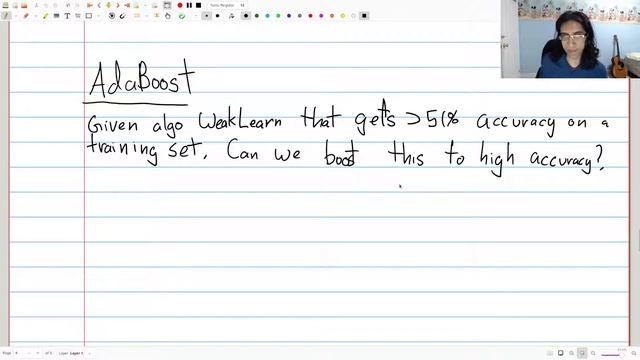 AdaBoost
Given algo WeakLearn that gets >51% accuracy on a
training set. Can we boost this to high accuracy?